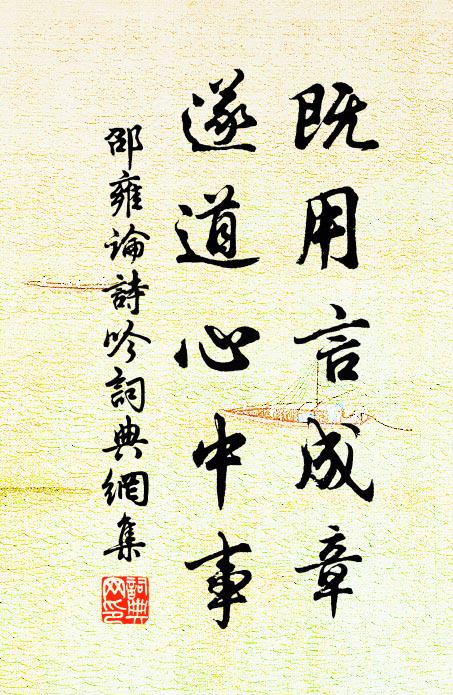 既用言成章
遂道心中事
邵雍論詩吟詞典網集
詞典网印